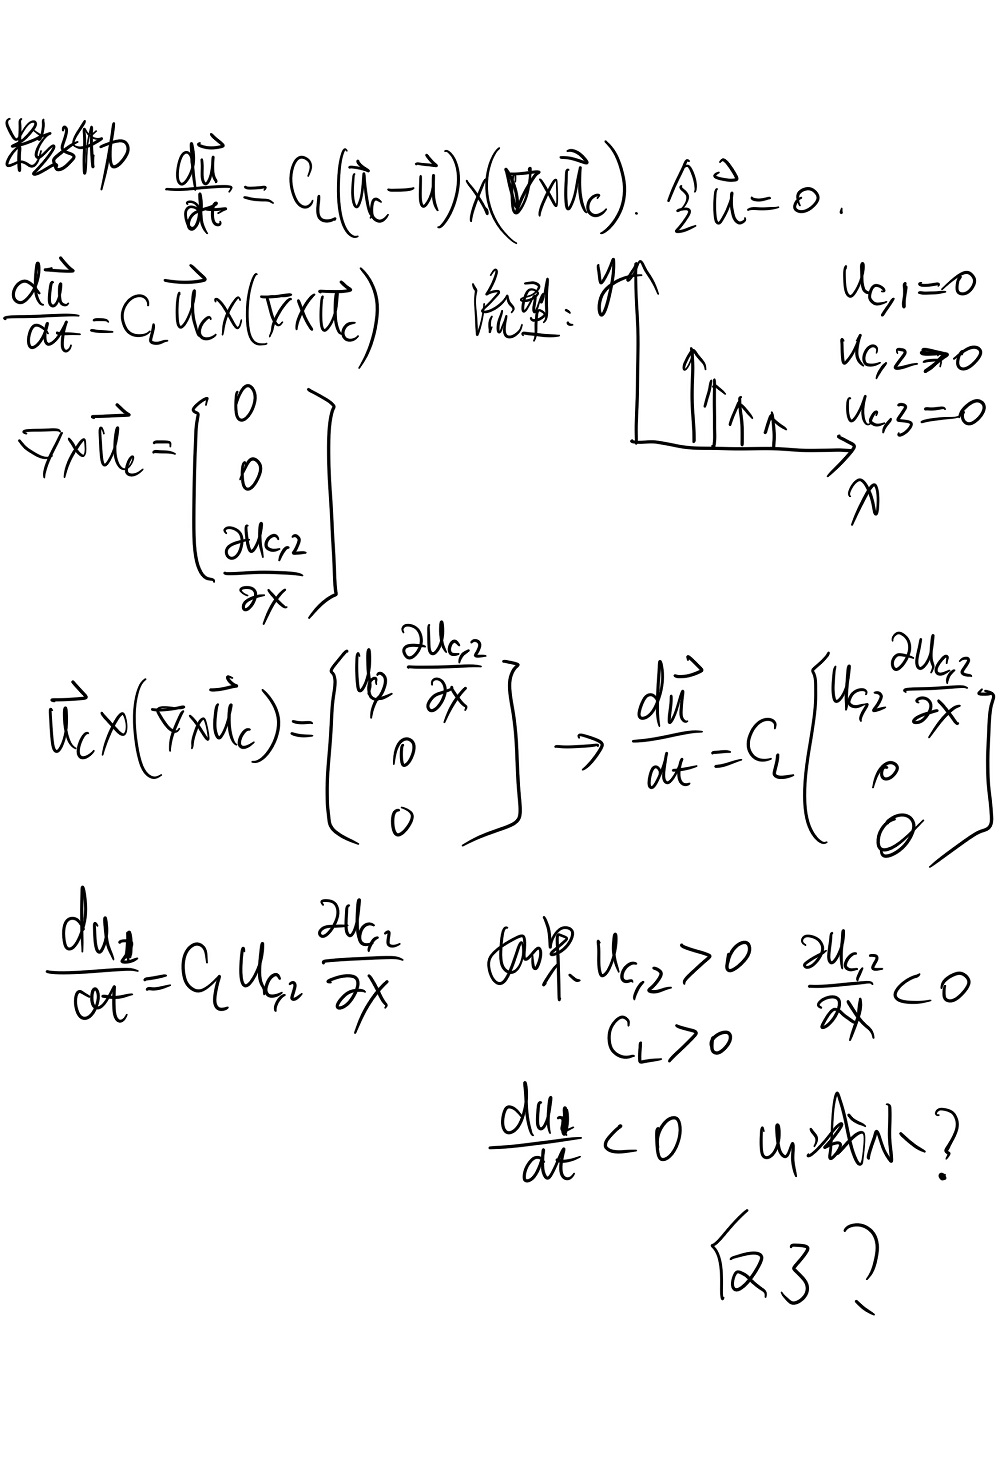 d\vec{u}/dt = C_L(\vec{u}_c - \vec{u}) × (∇×\vec{u}_c). 令 \vec{u} = 0.
d\vec{u}/dt = C_L \vec{u}_c × (∇×\vec{u}_c) 流型: y x
u_{c,1} = 0
u_{c,2} > 0
u_{c,3} = 0
∇×\vec{u}_c = [0; 0; ∂u_{c,2}/∂x]
\vec{u}_c × (∇×\vec{u}_c) = [u_{c,2} ∂u_{c,2}/∂x; 0; 0] → d\vec{u}/dt = C_L [u_{c,2} ∂u_{c,2}/∂x; 0; 0]
du_1/dt = C_L u_{c,2} ∂u_{c,2}/∂x 如果 u_{c,2} > 0 ∂u_{c,2}/∂x < 0
C_L > 0
du_1/dt < 0 u_1 减小?
反了?